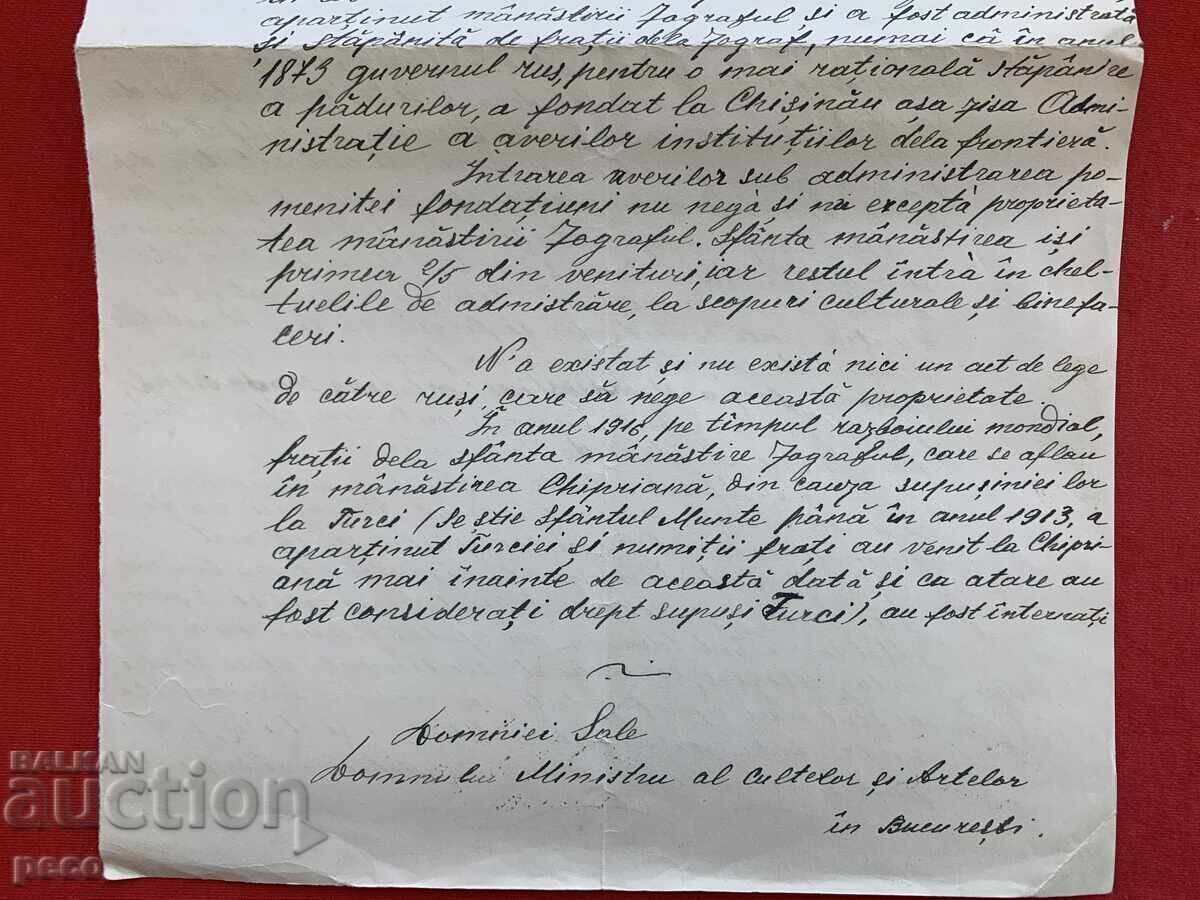 aparținut mânăstirii Zograful și a fost administrată
și stăpânită de frații dela Zograf, numai că în anul
1873 guvernul rus, pentru o mai rațională stăpânire
a pădurilor, a fondat la Chișinău așa zisa Admi-
nistrație a averilor instituțiilor dela frontieră.
Întrarea averilor sub administrarea po-
menitei fondațiuni nu negà și nu exceptà proprieta-
tea mânăstirii Zograful. Sfânta mânăstirea iși
primea 2/5 din venituri, iar restul întrà în chel-
tuelile de administrăre, la scopuri culturale și binefa-
ceri.
N'a existat și nu există nici un act de lege
de către ruși care să nege această proprietate.
În anul 1916, pe tîmpul războiului mondial,
frații dela sfânta mânăstire Zograful, care se aflau
în mânăstirea Chipriană, din cauza supușiniei lor
la Turci (se știe Sfântul Munte până în anul 1913, a
aparținut Turciei și numiții frați au venit la Chipri-
ană mai înainte de această dată și ca atare au
fost considerați drept supuși Turci), au fost internați
Domniei Sale
Domnului Ministru al Cultelor și Artelor
în București.
BALKAN
auction
peco